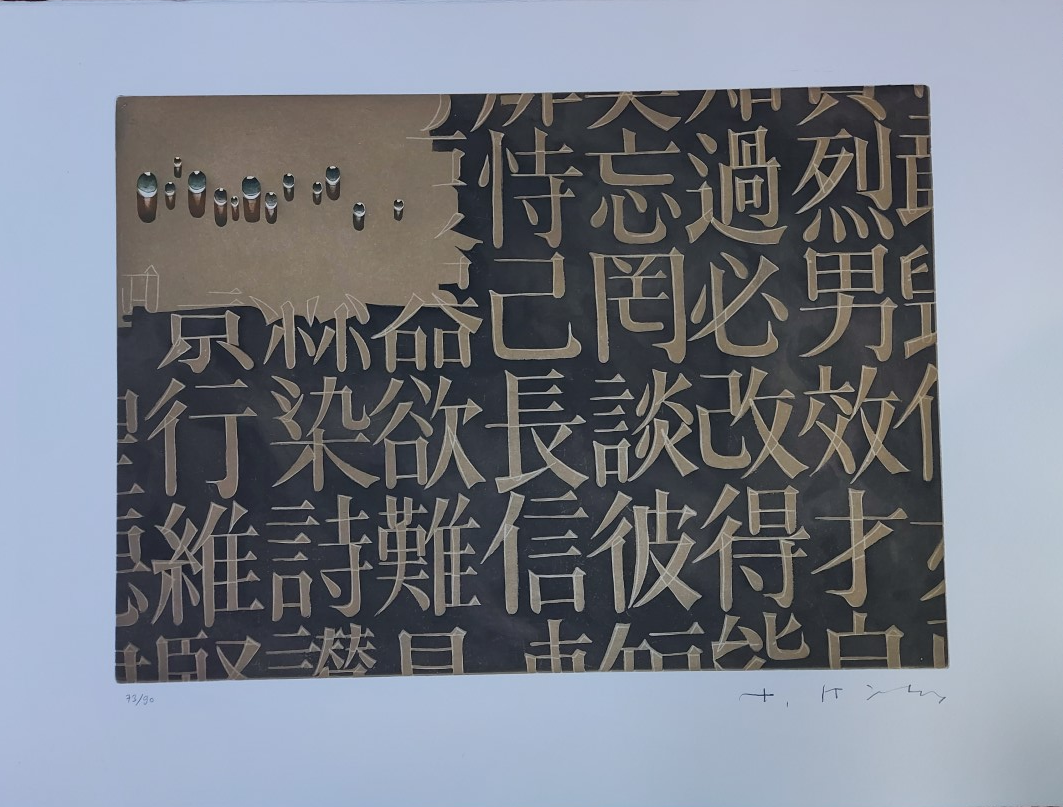 烈男效才
知過必改得能
忘罔談彼短
恃己長信
欲難
染詩讚
行維
73/90